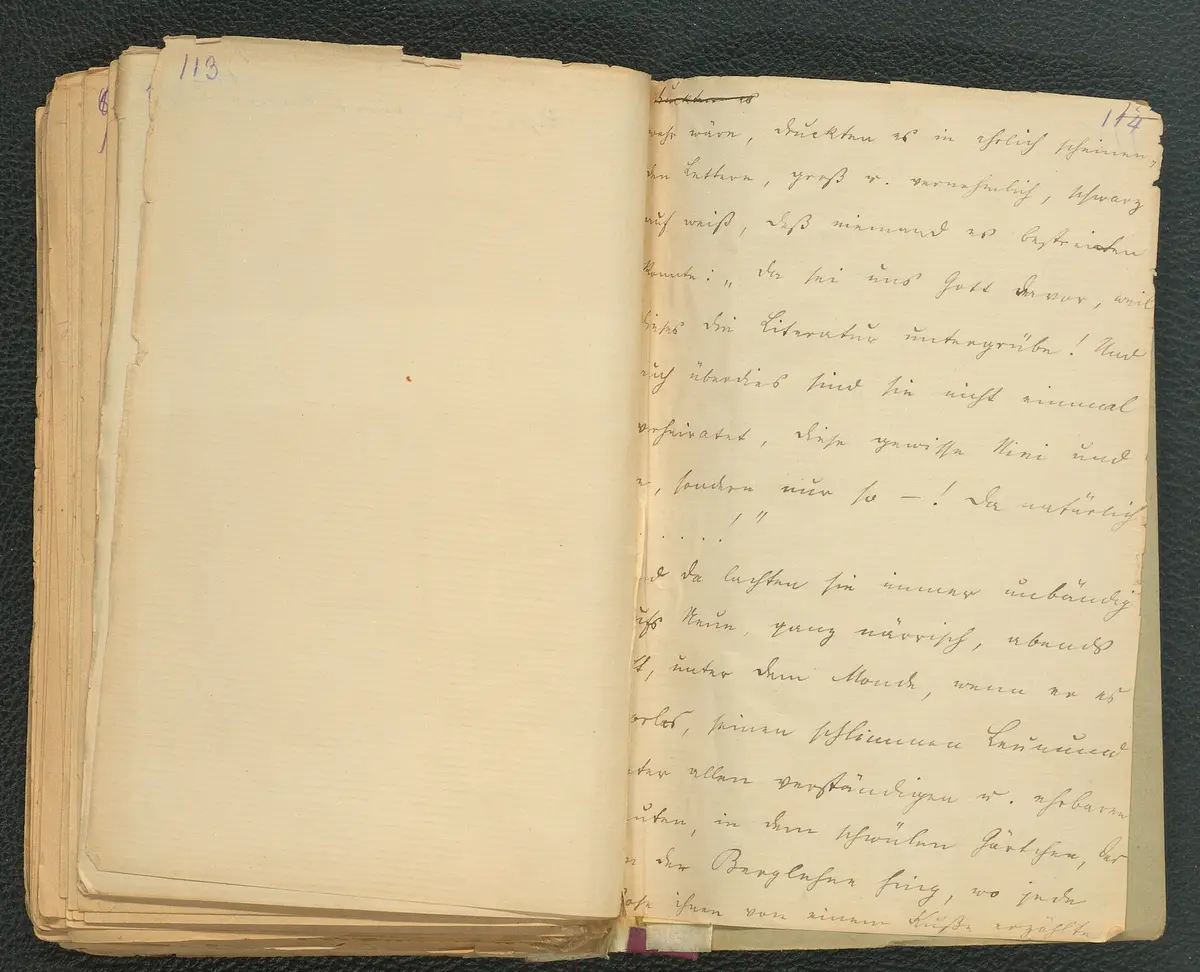 113
114
druckten es
wahr wäre, druckten es in ehrlich scheinen-
den Lettern, groß u. vernehmlich, schwarz
auf weiß, daß niemand es bestreiten
konnte: „Da sei uns Gott davor, weil
dieses die Literatur untergrübe! Und
auch überdies sind sie nicht einmal
verheiratet, diese gewisse Nini und
er, sondern nur so –! Da natürlich
. . . . . ! "
und da lachten sie immer unbändig
aufs Neue, ganz närrisch, abends
unter dem Monde, wenn er es
vorlas, seinen schlimmen Leumund
unter allen verständigen u. ehrbaren
Leuten, in dem schwülen Gärtchen, das
an der Berglehne hing, wo jede
Rose ihnen von einem Kuße erzählte